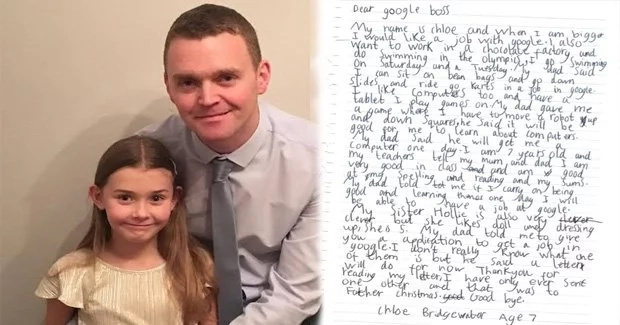 Dear google boss
My name is chloe and when I am bigger
I would like a job with google. I also
want to work in a chocolate factory and
do swimming in the olympics. I go swimming
on Saturday and a Tuesday. My dad said
I can sit on bean bags and go down
slides and ride go karts in a job in google.
I like computers too and have a
tablet I play games on. My dad gave me
a game where I have to move a robot up
and down squares, he said it will be
good for me to learn about computers.
My dad said he will get me a
computer one day. I am 7 years old and
my teachers tell my mum and dad I am
very good in class and am good
at my spelling and reading and my sums.
My dad told me if I carry on being
good and learning things one day I will
be able to have a job at google.
My sister Hollie is also very
clever but she likes doll and dressing
up, shes 5. My dad told me to give
you a application to get a job in
google. I don't really know what one
of them is but he said a letter
will do for now. Thankyou for
reading my letter, I have only ever sent
one other and that was to
Father christmas. Good bye.
Chloe Bridgewater Age 7